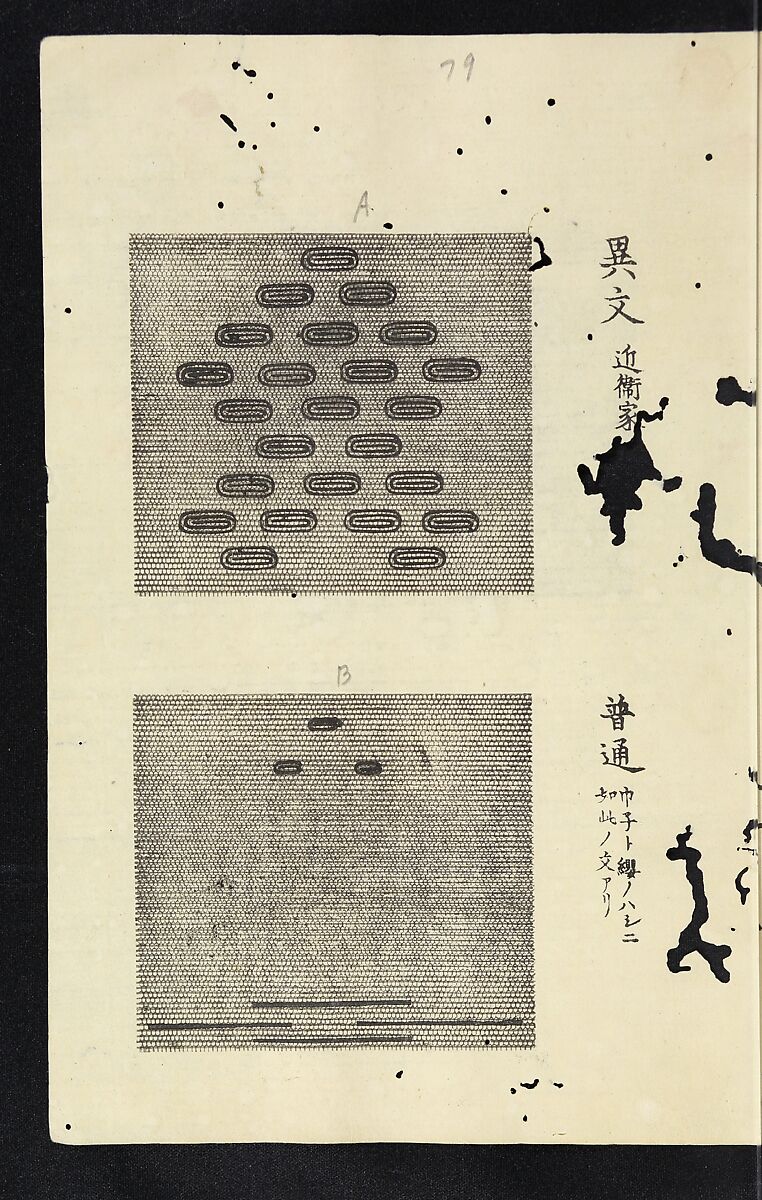 79
A
異文 近衞家
B
普通 巾子ト纓ノハシニ
如此ノ文アリ